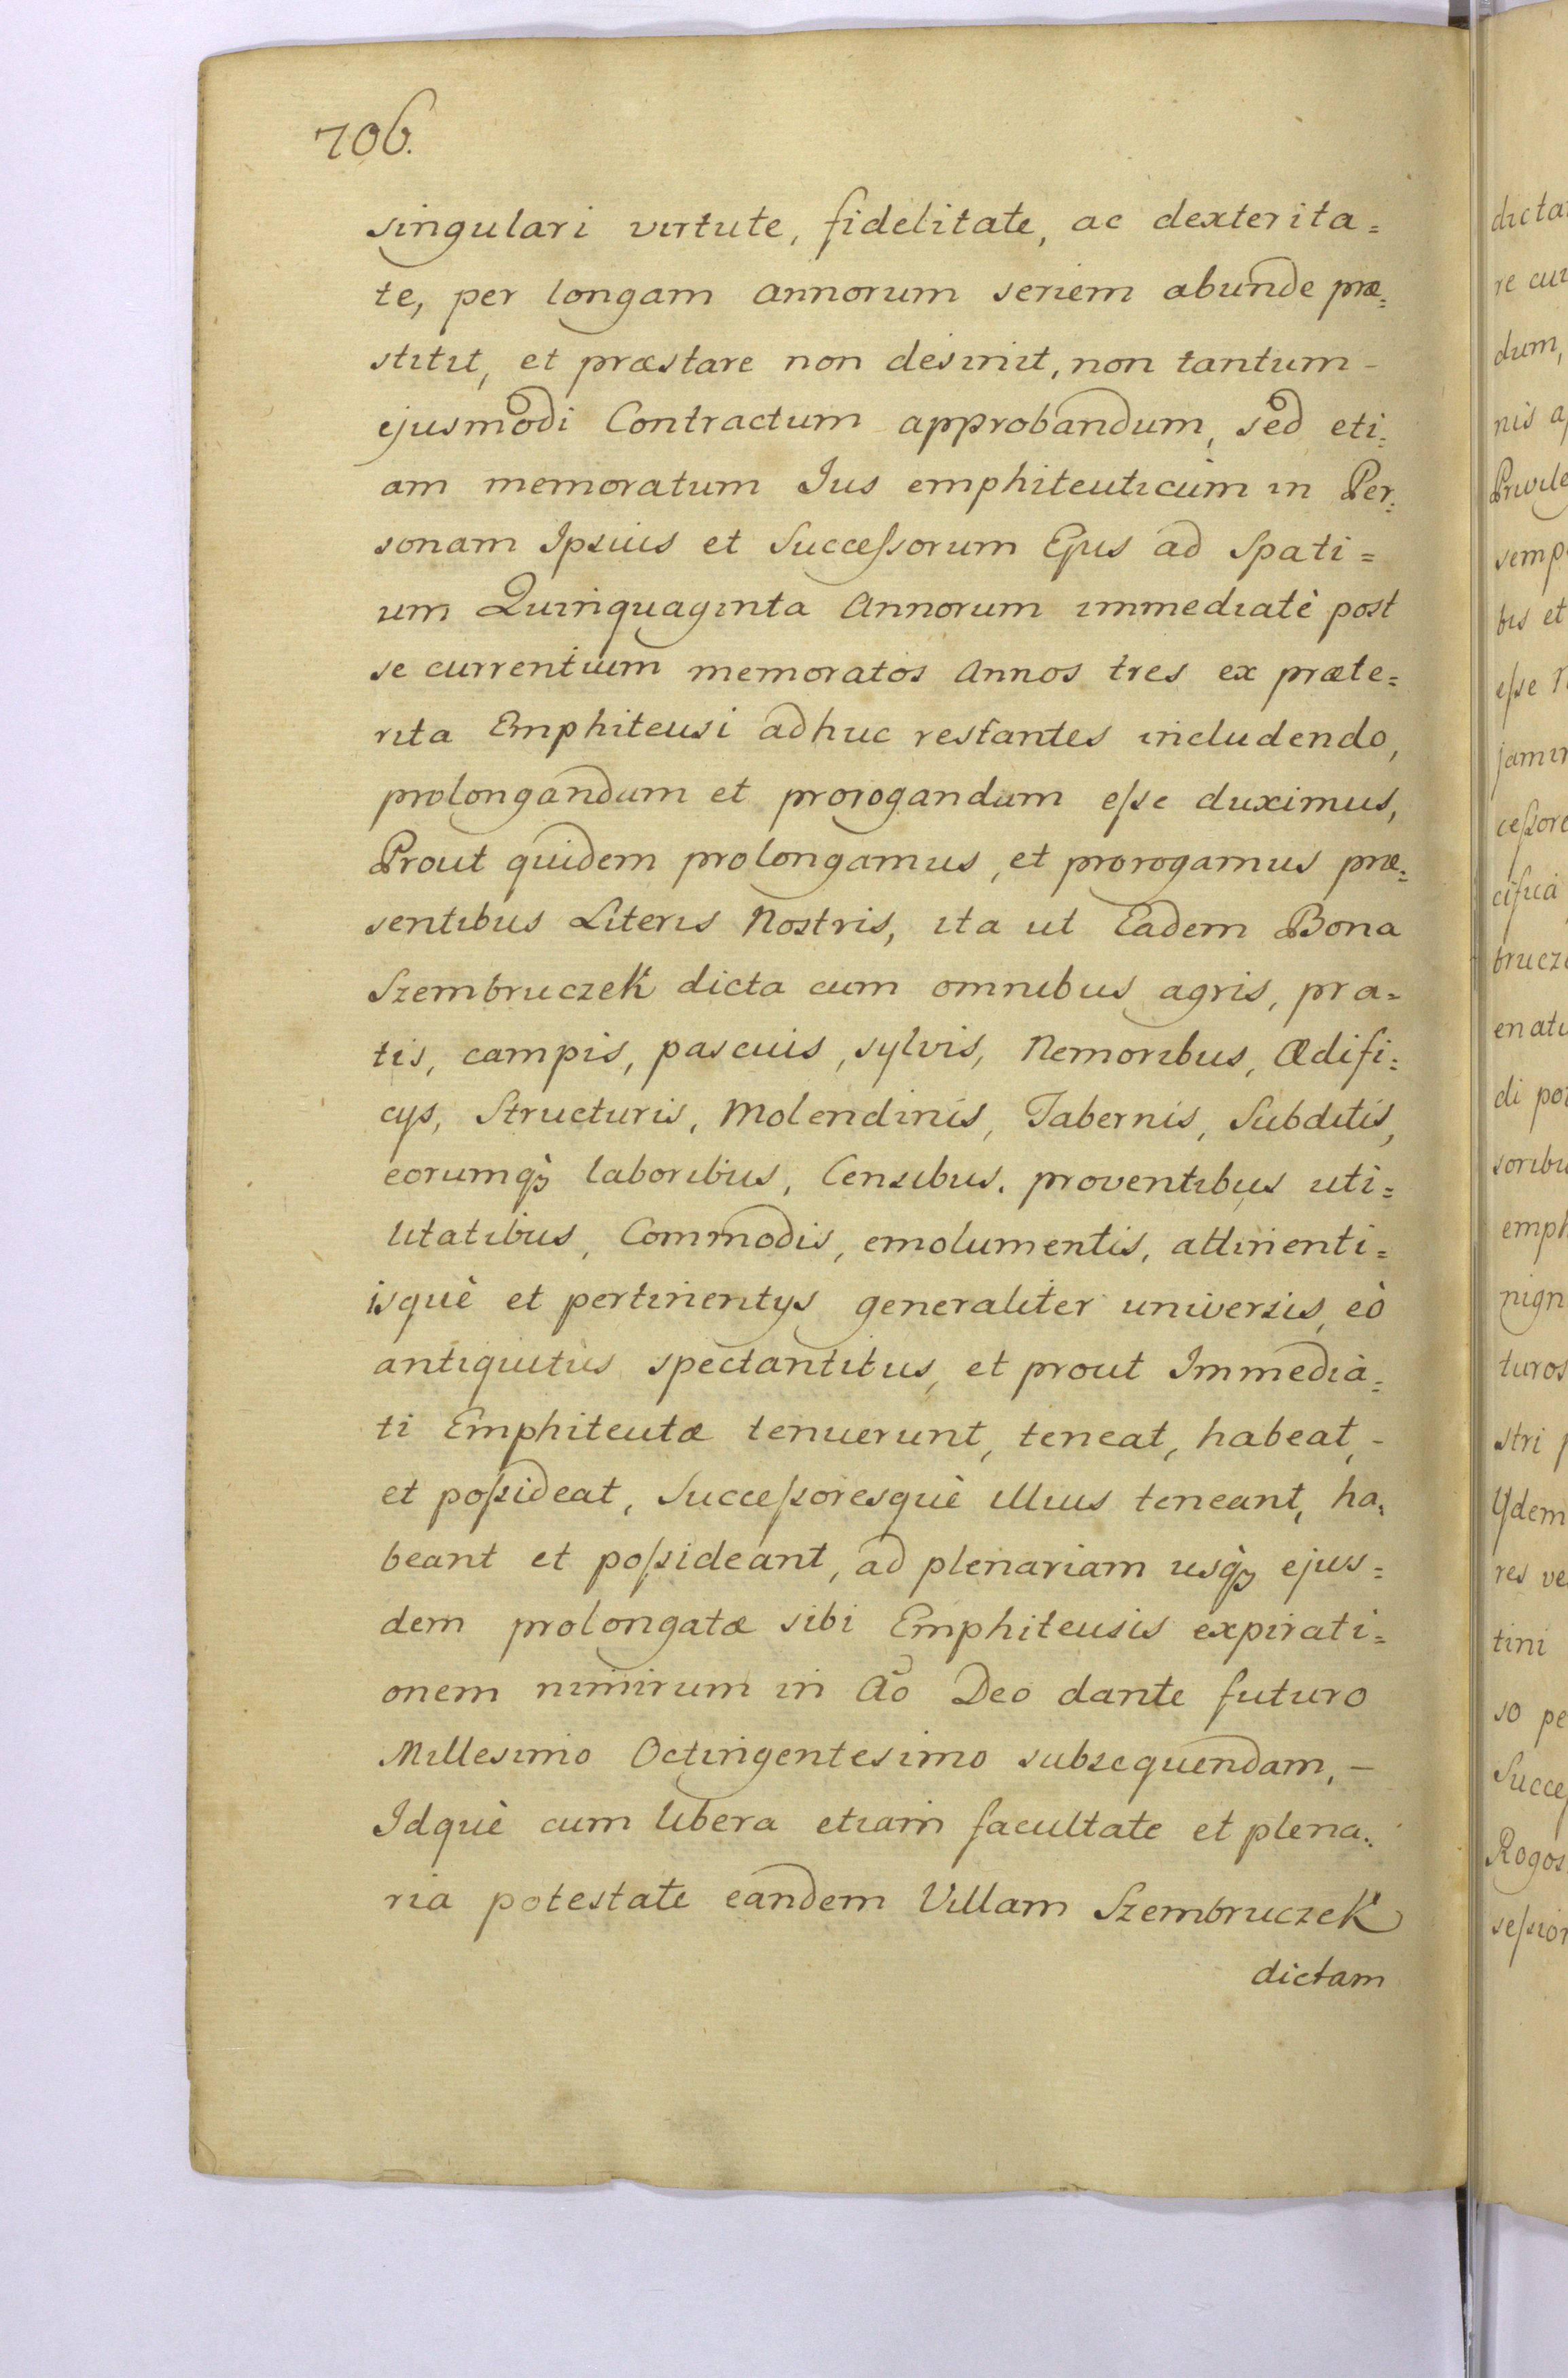 706.
singulari virtute, fidelitate, ac dexterita=
te, per longam annorum seriem abunde præ=
stitit, et præstare non desinit, non tantum -
ejusmodi Contractum approbandum, sed eti=
am memoratum Jus emphiteuticum in Per=
sonam Ipsius et Succeſsorum Ejus ad Spati=
um Quinquaginta Annorum immediatè post
se currentium memoratos Annos tres ex præte=
rita Emphiteusi adhuc restantes includendo,
prolongandum et prorogandum eſse duximus,
Prout quidem prolongamus, et prorogamus præ=
sentibus Literis Nostris, ita ut Eadem Bona
Szembruczek dicta cum omnibus agris, pra=
tis, campis, pascuis, sylvis, Nemoribus, Ædifi=
cys, Structuris, Molendinis, Tabernis, Subditis,
eorumqȝ laboribus, Censibus, proventibus uti=
litatibus, Commodis, emolumentis, attinenti=
isquè et pertinentys generaliter universis, eò
antiquitus spectantibus, et prout Immedia=
ti Emphiteutæ tenuerunt, teneat, habeat, -
et poſsideat, Succeſsoresquè illius teneant, ha=
beant et poſsideant, ad plenariam usqȝ ejus=
dem prolongatæ sibi Emphiteusis expirati=
onem nimirum in Aõ Deo dante futuro
Millesimo Octingentesimo subsequendam, -
Idquè cum libera etiam facultate et plena=
ria potestate eandem Villam Szembruczek
dictam
dicta
dum,
nis
semp
bis et
eſse
cifica
enatu
di
soribu
emph
turos
stri
Ydem
res ve
tini
so pe
Rogos